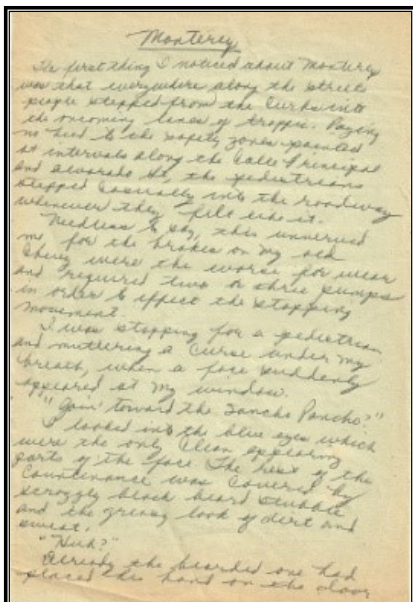 Monterey
The first thing I noticed about Monterey
was that everywhere along the streets
people stepped from the curbs into
the oncoming lanes of traffic. Paying
no heed to the safety zones painted
at intervals along the Calle Principal
and Alvarado St. the pedestrians
stepped casually into the roadway
whenever they felt like it.
Needless to say, this unnerved
me for the brakes on my old
Chevy were the worse for wear
and required two or three pumps
in order to effect the stopping
movement.
I was stopping for a pedestrian
and muttering a curse under my
breath, when a face suddenly
appeared at my window.
"Goin' toward the Sancho Pancho?"
I looked into the blue eyes which
were the only clean appearing
parts of the face. The rest of the
countenance was covered by
scroggly black beard stubble
and the greasy look of dirt and
sweat.
"Huh?"
Already the bearded one had
placed his hand on the door